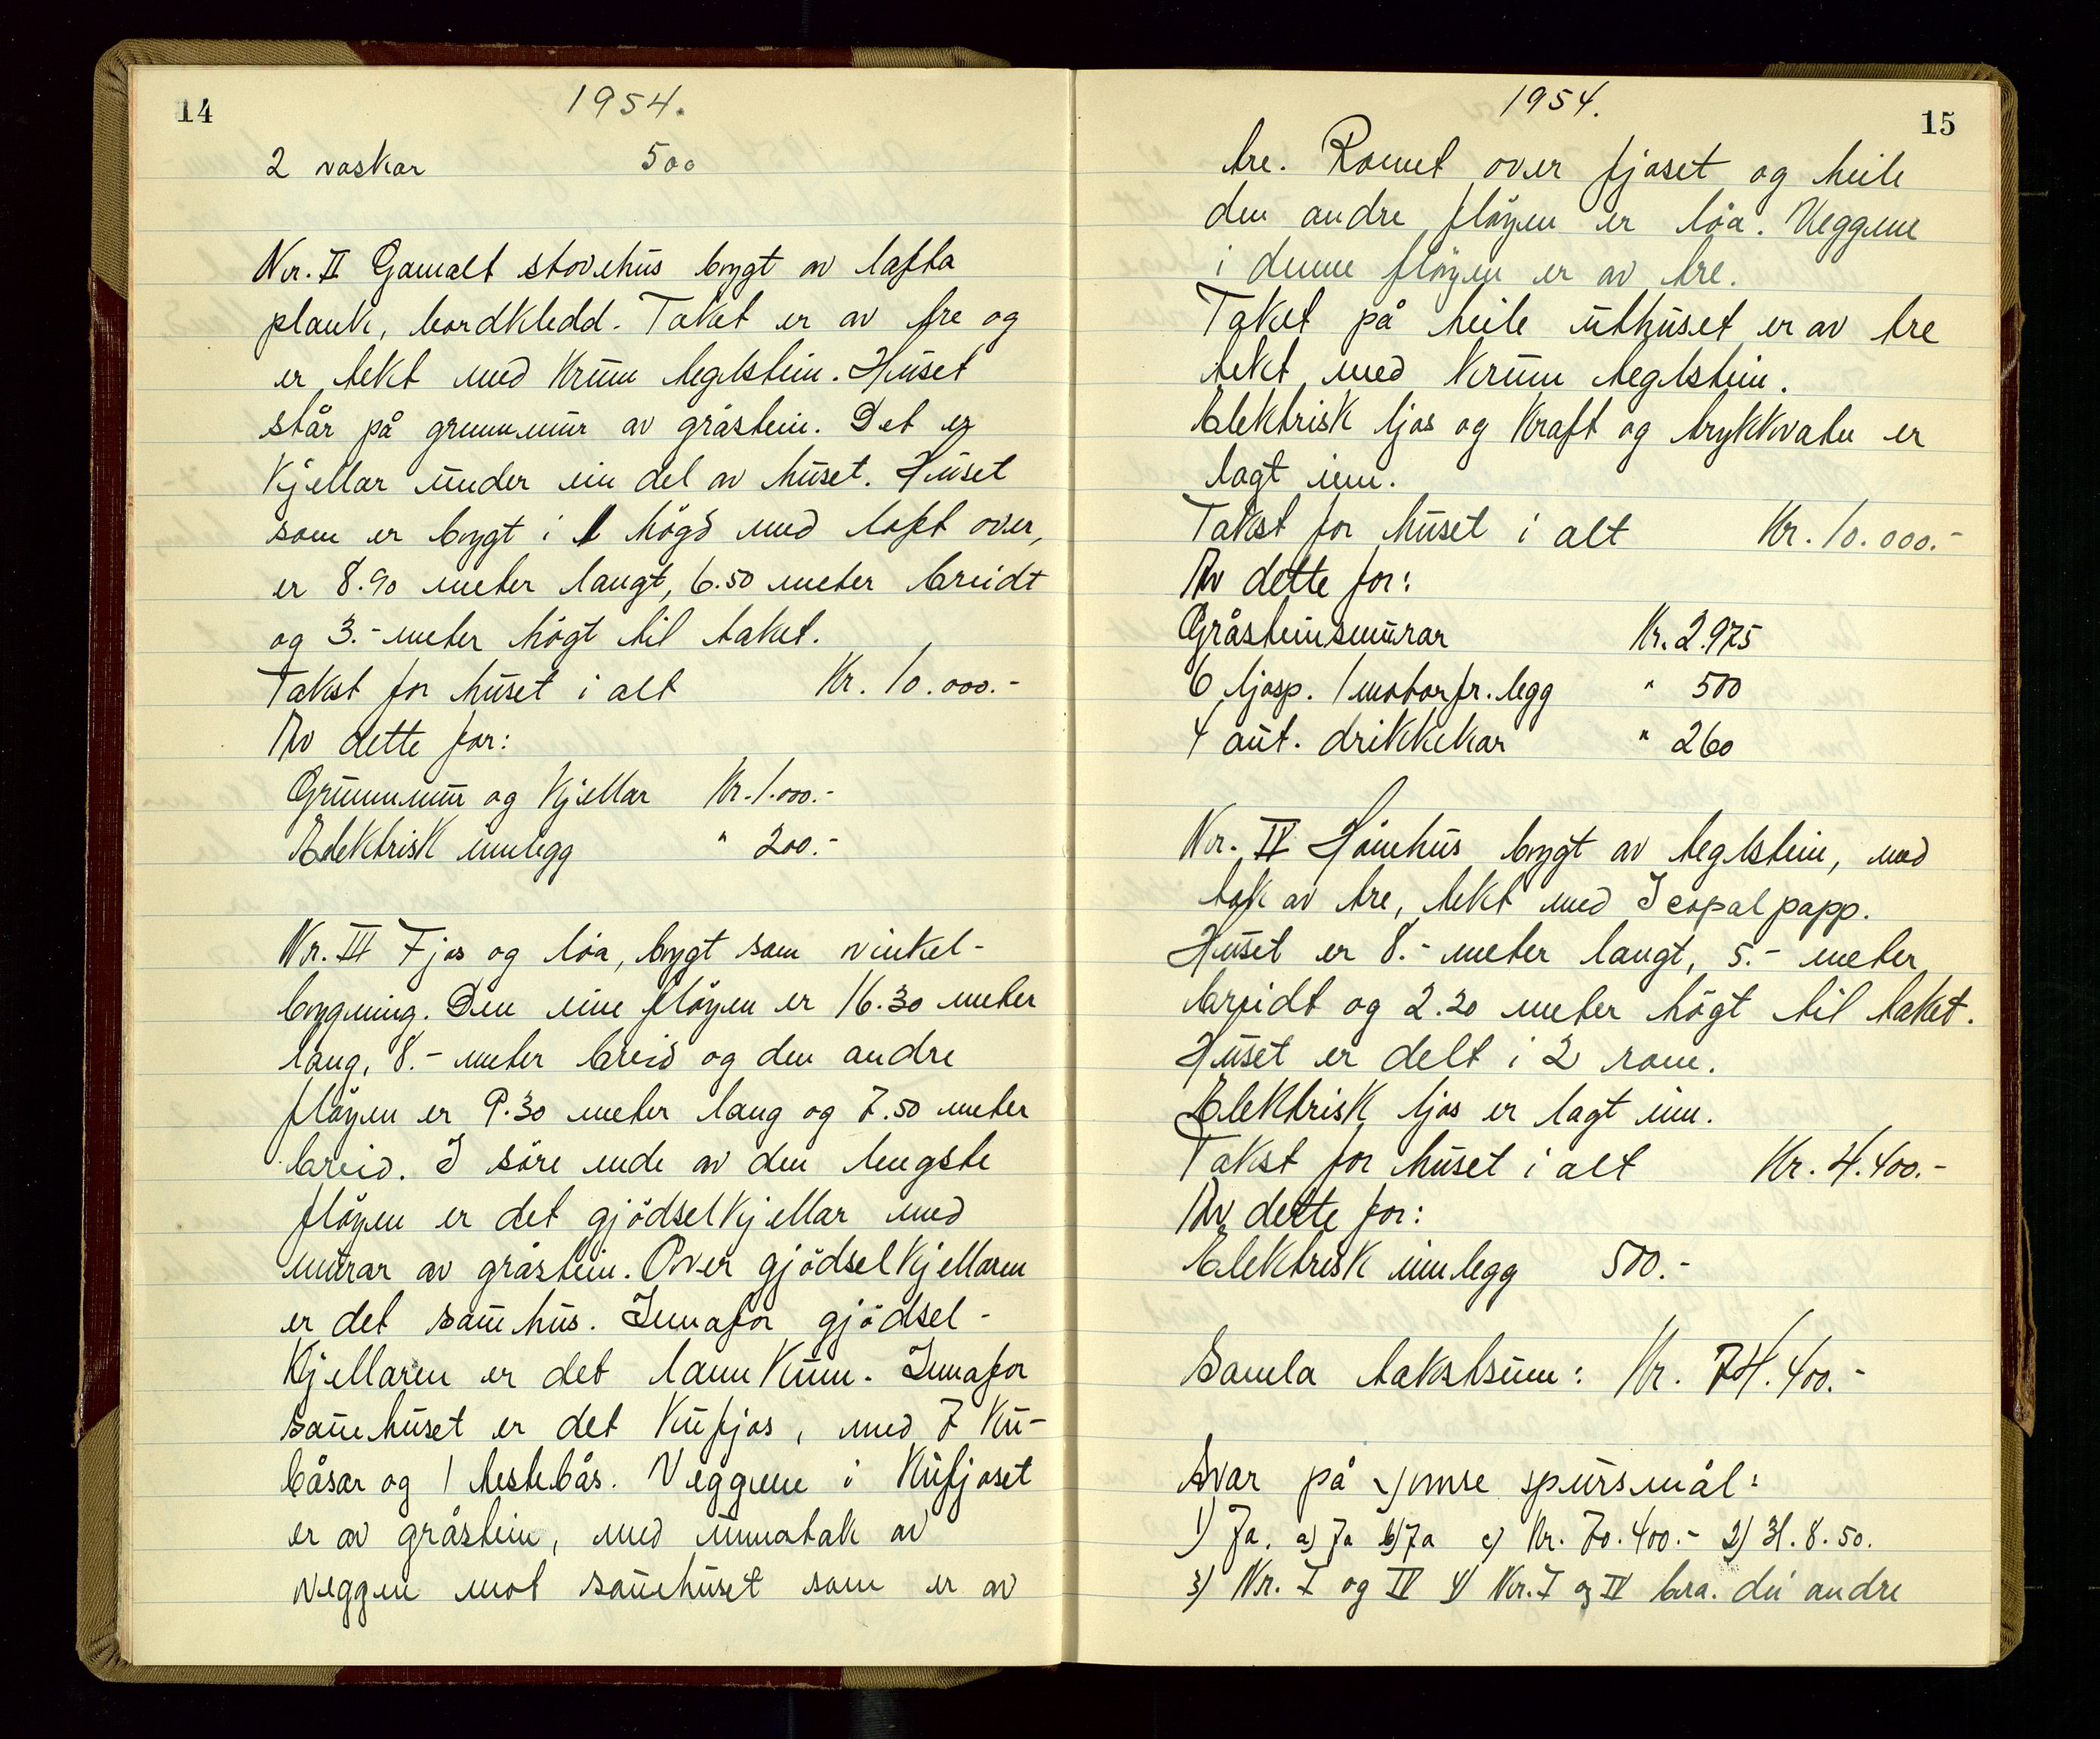 14
1954.
2 vaskar 500
Nr. II Gamalt stovehus bygt av lafta
plank, bordkledd. Taket er av tre og
er tekt med krum teglstein. Huset
står på grunnmur av gråstein. Det er
kjellar under ein del av huset. Huset
som er bygt i 1 högd med loft over,
er 8.90 meter langt, 6.50 meter breidt
og 3.- meter högt til taket.
Takst for huset i alt Kr. 10.000.-
Av dette for:
Grunnmur og kjellar Kr. 1.000.-
Elektrisk innlegg " 200.-
Nr. III Fjos og löa, bygt som vinkel-
bygning. Den eine flöyen er 16.30 meter
lang, 8.- meter breid og den andre
flöyen er 9.30 meter lang og 7.50 meter
breid. I söre ende av den lengste
flöyen er det gjödselkjellar med
murar av gråstein. Over gjödselkjellaren
er det sauehus. Innafor gjödsel-
kjellaren er det landkum. Innafor
sauehuset er det kufjos, med 7 ku-
båsar og 1 hestebås. Veggene i kufjoset
er av gråstein, med unnatak av
veggen mot sauehuset som er av
1954.
15
tre. Romet over fjoset og heile
den andre flöyen er löa. Veggene
i denne flöyen er av tre.
Taket på heile uthuset er av tre
tekt med krum teglstein.
Elektrisk ljos og kraft og trykkvatn er
lagt inn.
Takst for huset i alt Kr. 10.000.-
Av dette for:
Gråsteinsmurar Kr. 2.975
6 ljosp. 1 motorfr. legg " 500
4 aut. drikkekar " 260
Nr. IV Hönehus bygt av teglstein, med
tak av tre, tekt med Icopalpapp.
Huset er 8.- meter langt, 5.- meter
breidt og 2.20 meter högt til taket.
Huset er delt i 2 rom.
Elektrisk ljos er lagt inn.
Takst for huset i alt Kr. 4.400.-
Av dette for:
Elektrisk innlegg 500.-
Samla takstsum: Kr. 74.400.-
Svar på ymse spursmål:
1) Ja. a) Ja b) Ja c) Kr. 70.400.- 2) 31.8.50.
3) Nr. I og IV 4) Nr. I og IV bra. dei andre